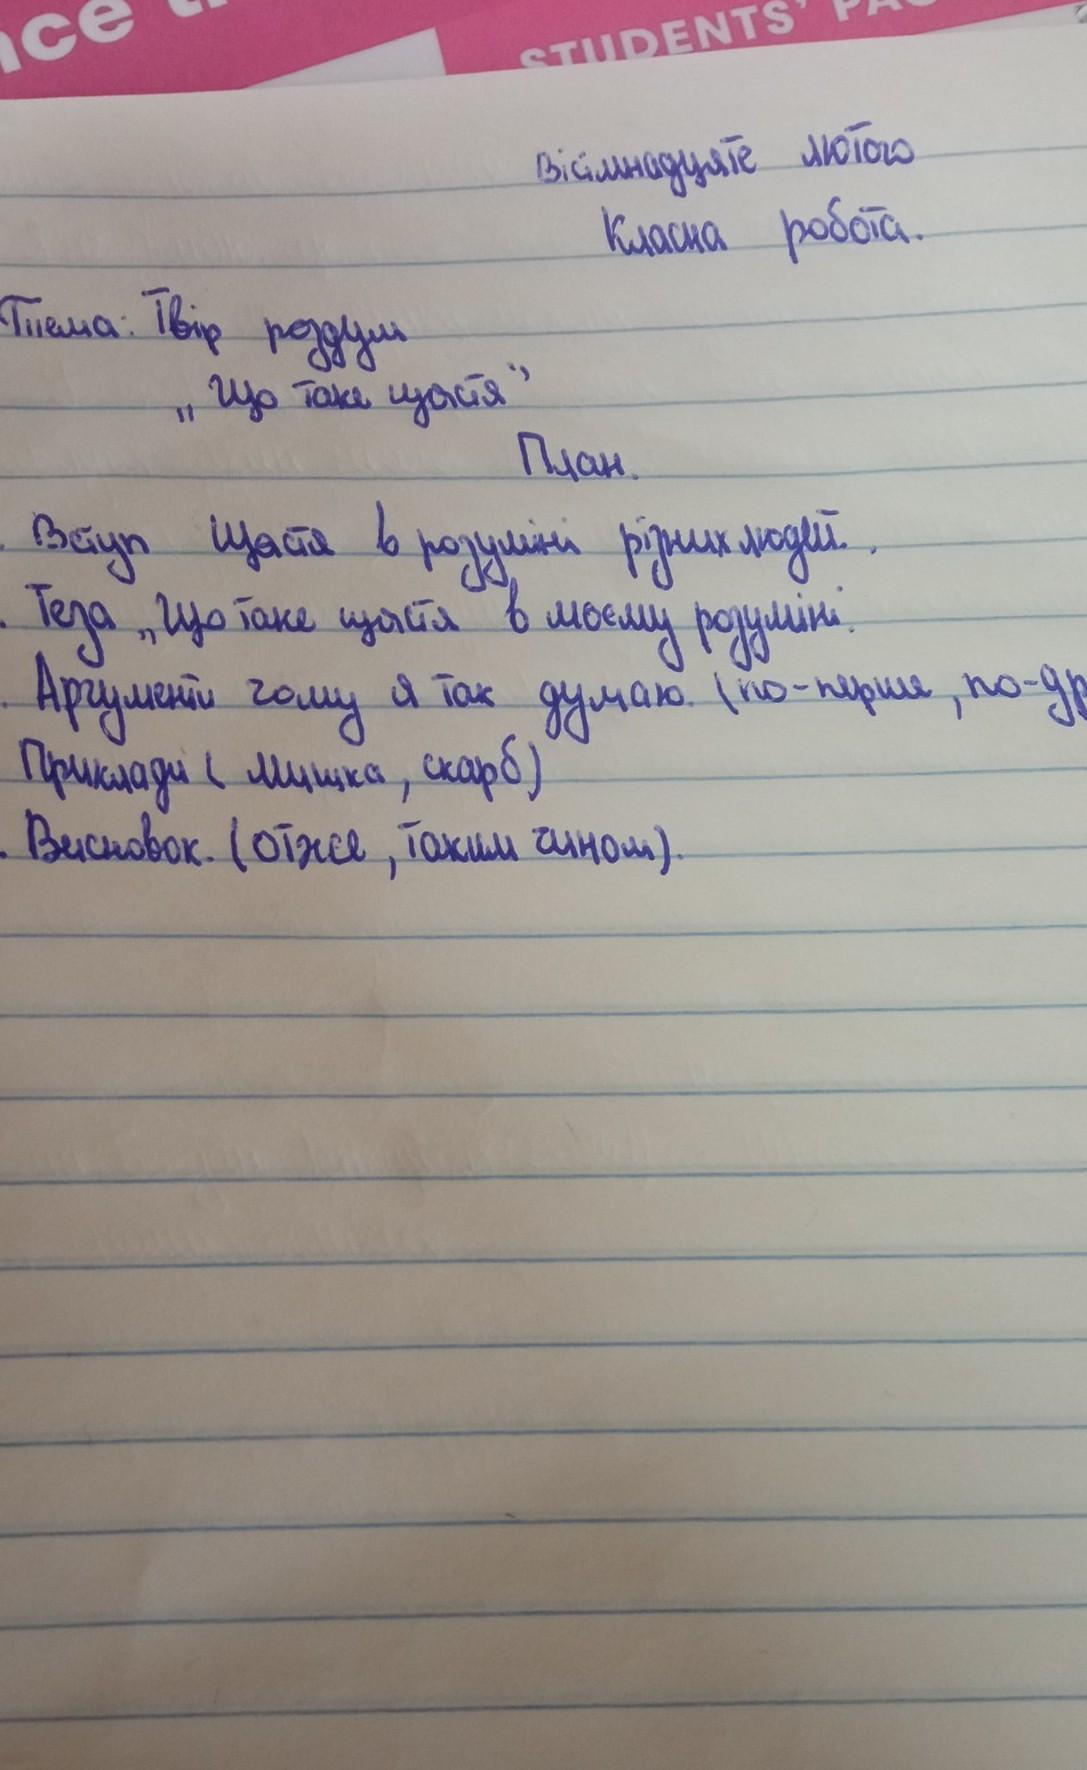 nce
STUDENTS' PA
Вісімнадцяте лютого
Класна робота.
Тема: Твір роздум
„Що таке щастя”
План.
. Вступ Щастя в розумінні різних людей.
. Теза „Що таке щастя в моєму розумінні.
. Аргументи чому я так думаю. (по-перше, по-др
Приклади (Мишка, скарб)
. Висновок. (отже, таким чином).